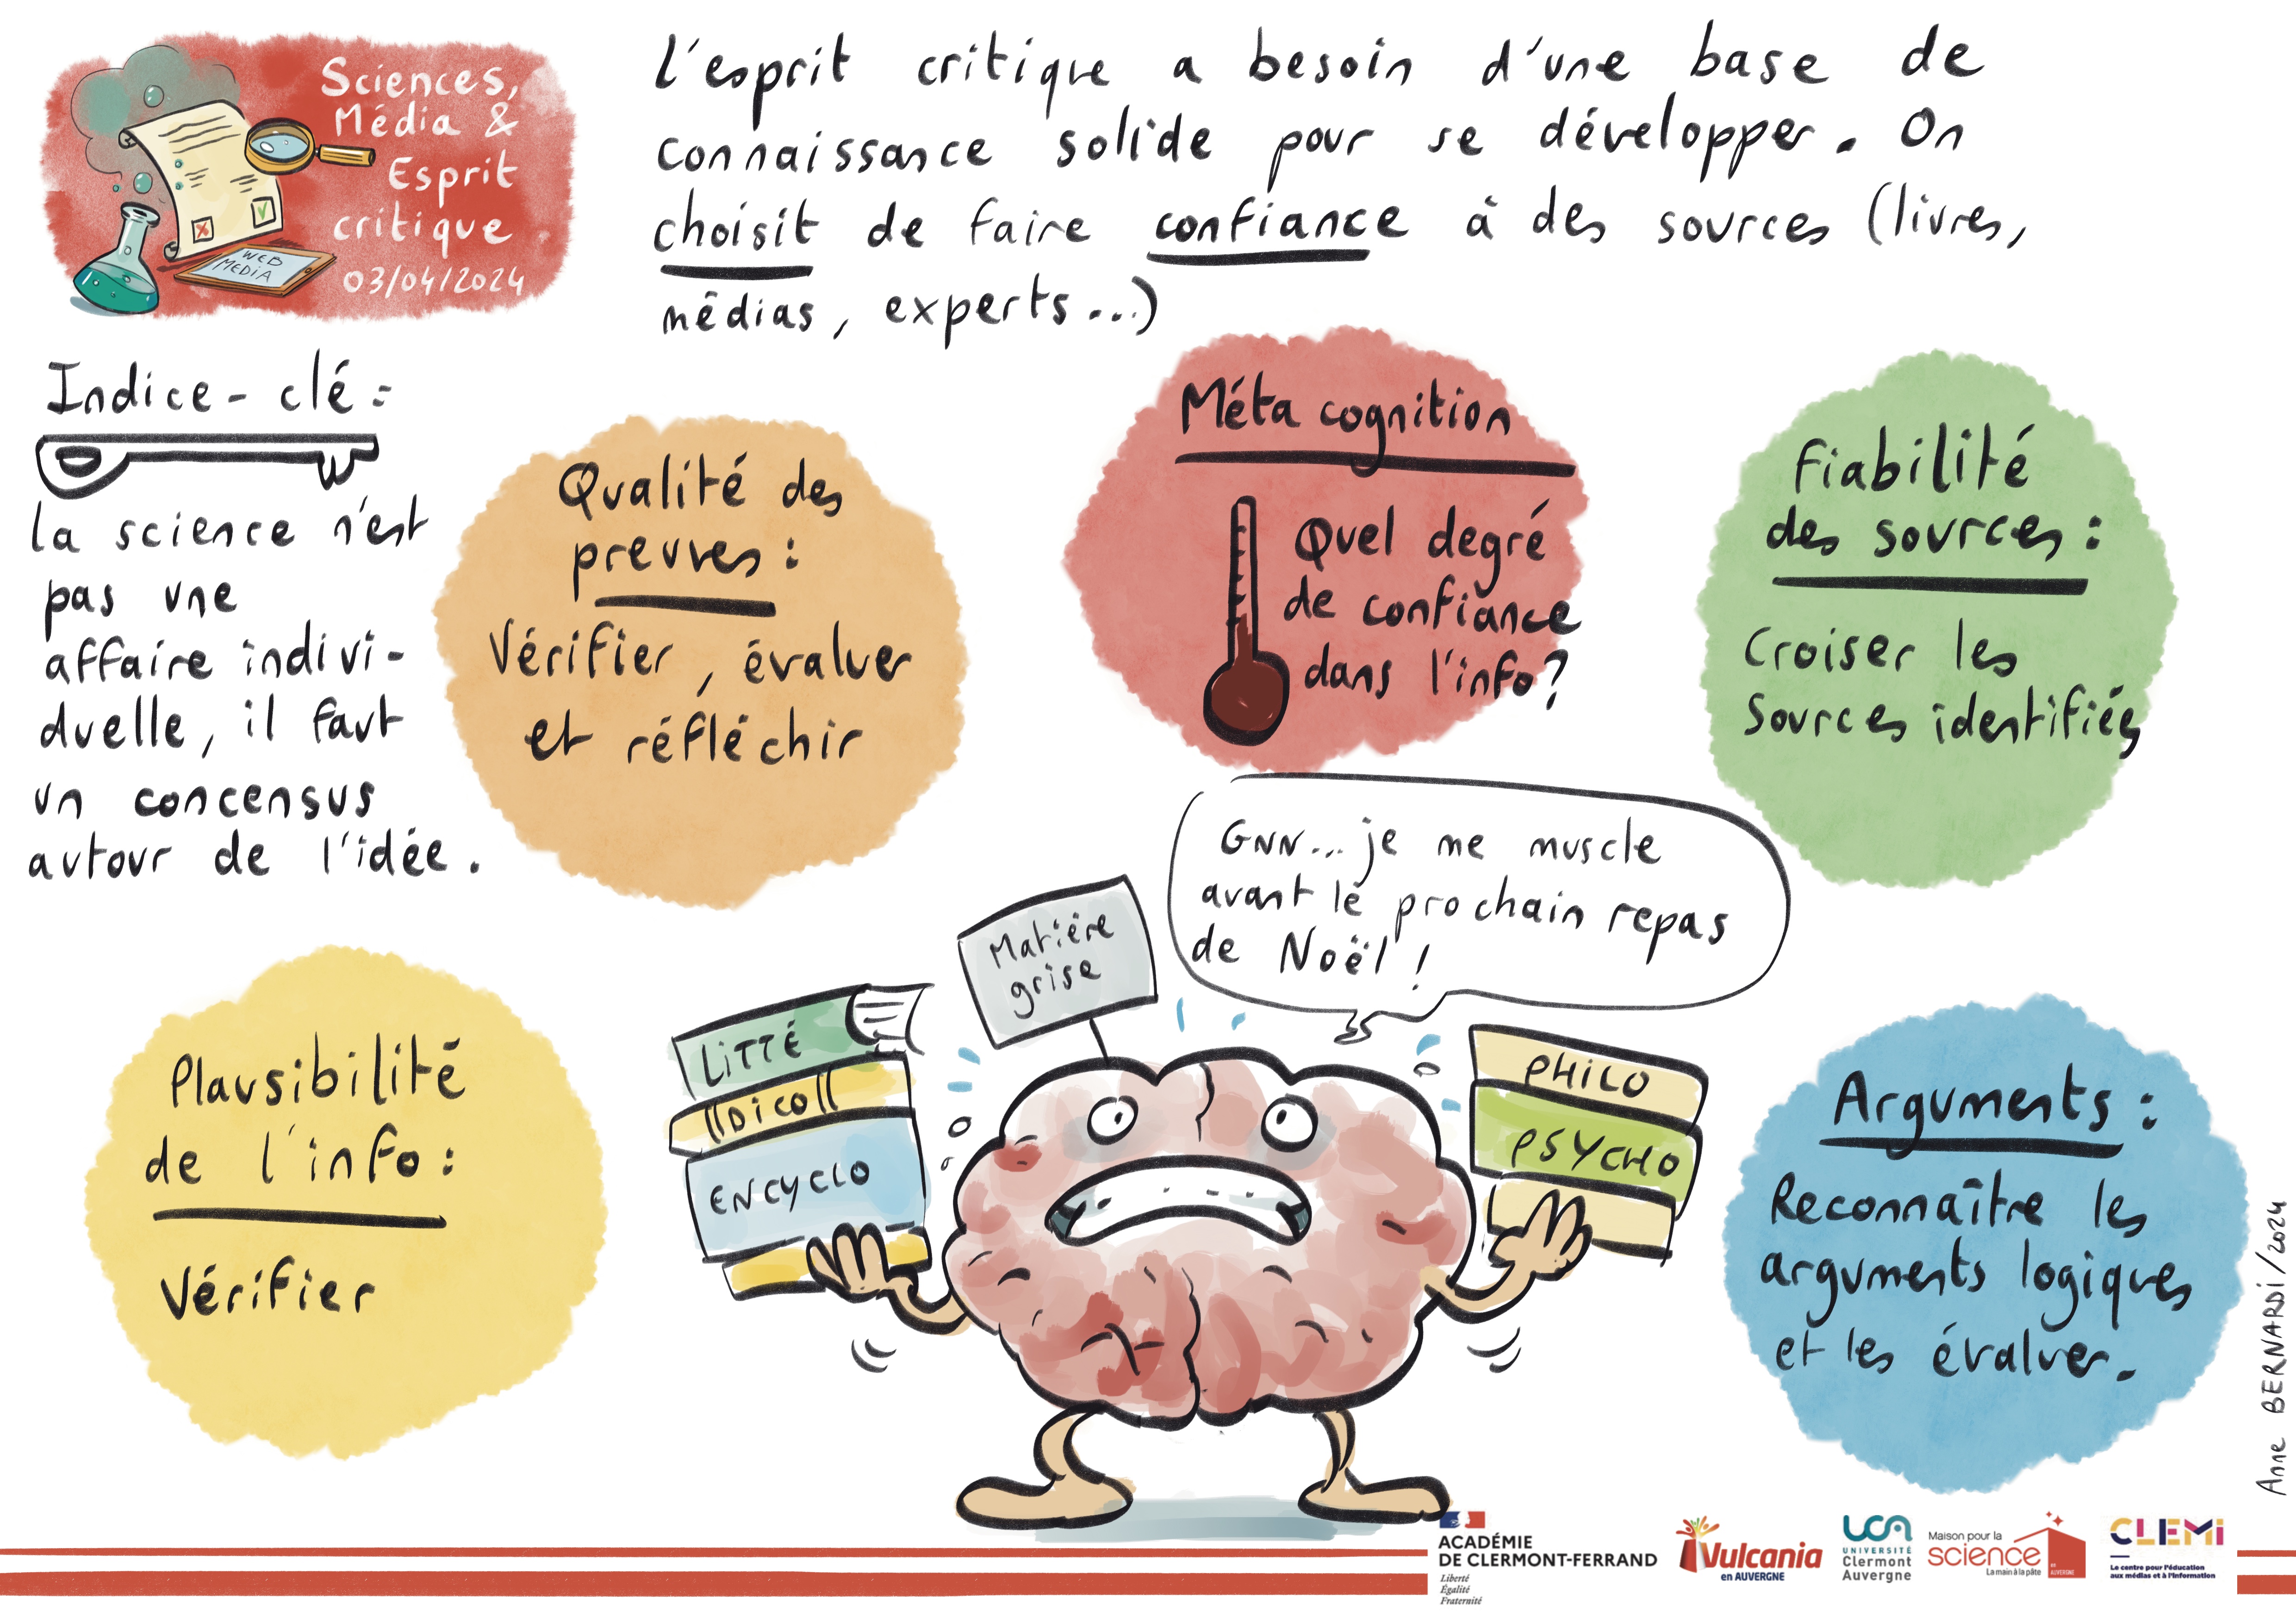 Sciences,
Média &
Esprit
critique
03/04/2024
WEB
MEDIA
l'esprit critique a besoin d'une base de
connaissance solide pour se développer. On
choisit de faire confiance à des sources (livres,
médias, experts...)
Indice-clé:
la science n'est
pas une
affaire indivi-
duelle, il faut
un concensus
autour de l'idée.
Qualité des
preuves:
Vérifier, évaluer
et réfléchir
Méta cognition
Quel degré
de confiance
dans l'info?
Fiabilité
des sources:
Croiser les
Sources identifiées
GNN... je me muscle
avant le prochain repas
de Noël!
Matière
grise
LITTÉ
DICO
ENCYCLO
PHILO
PSYCHO
Plausibilité
de l'info:
Vérifier
Arguments:
Reconnaître les
arguments logiques
et les évaluer.
Anne BERNARDI/2024
ACADÉMIE
DE CLERMONT-FERRAND
Liberté
Égalité
Fraternité
Vulcania
en AUVERGNE
UCA
UNIVERSITÉ
Clermont
Auvergne
Maison pour la
science
La main à la pâte
EN
AUVERGNE
CLEMI
Le centre pour l'éducation
aux médias et à l'information